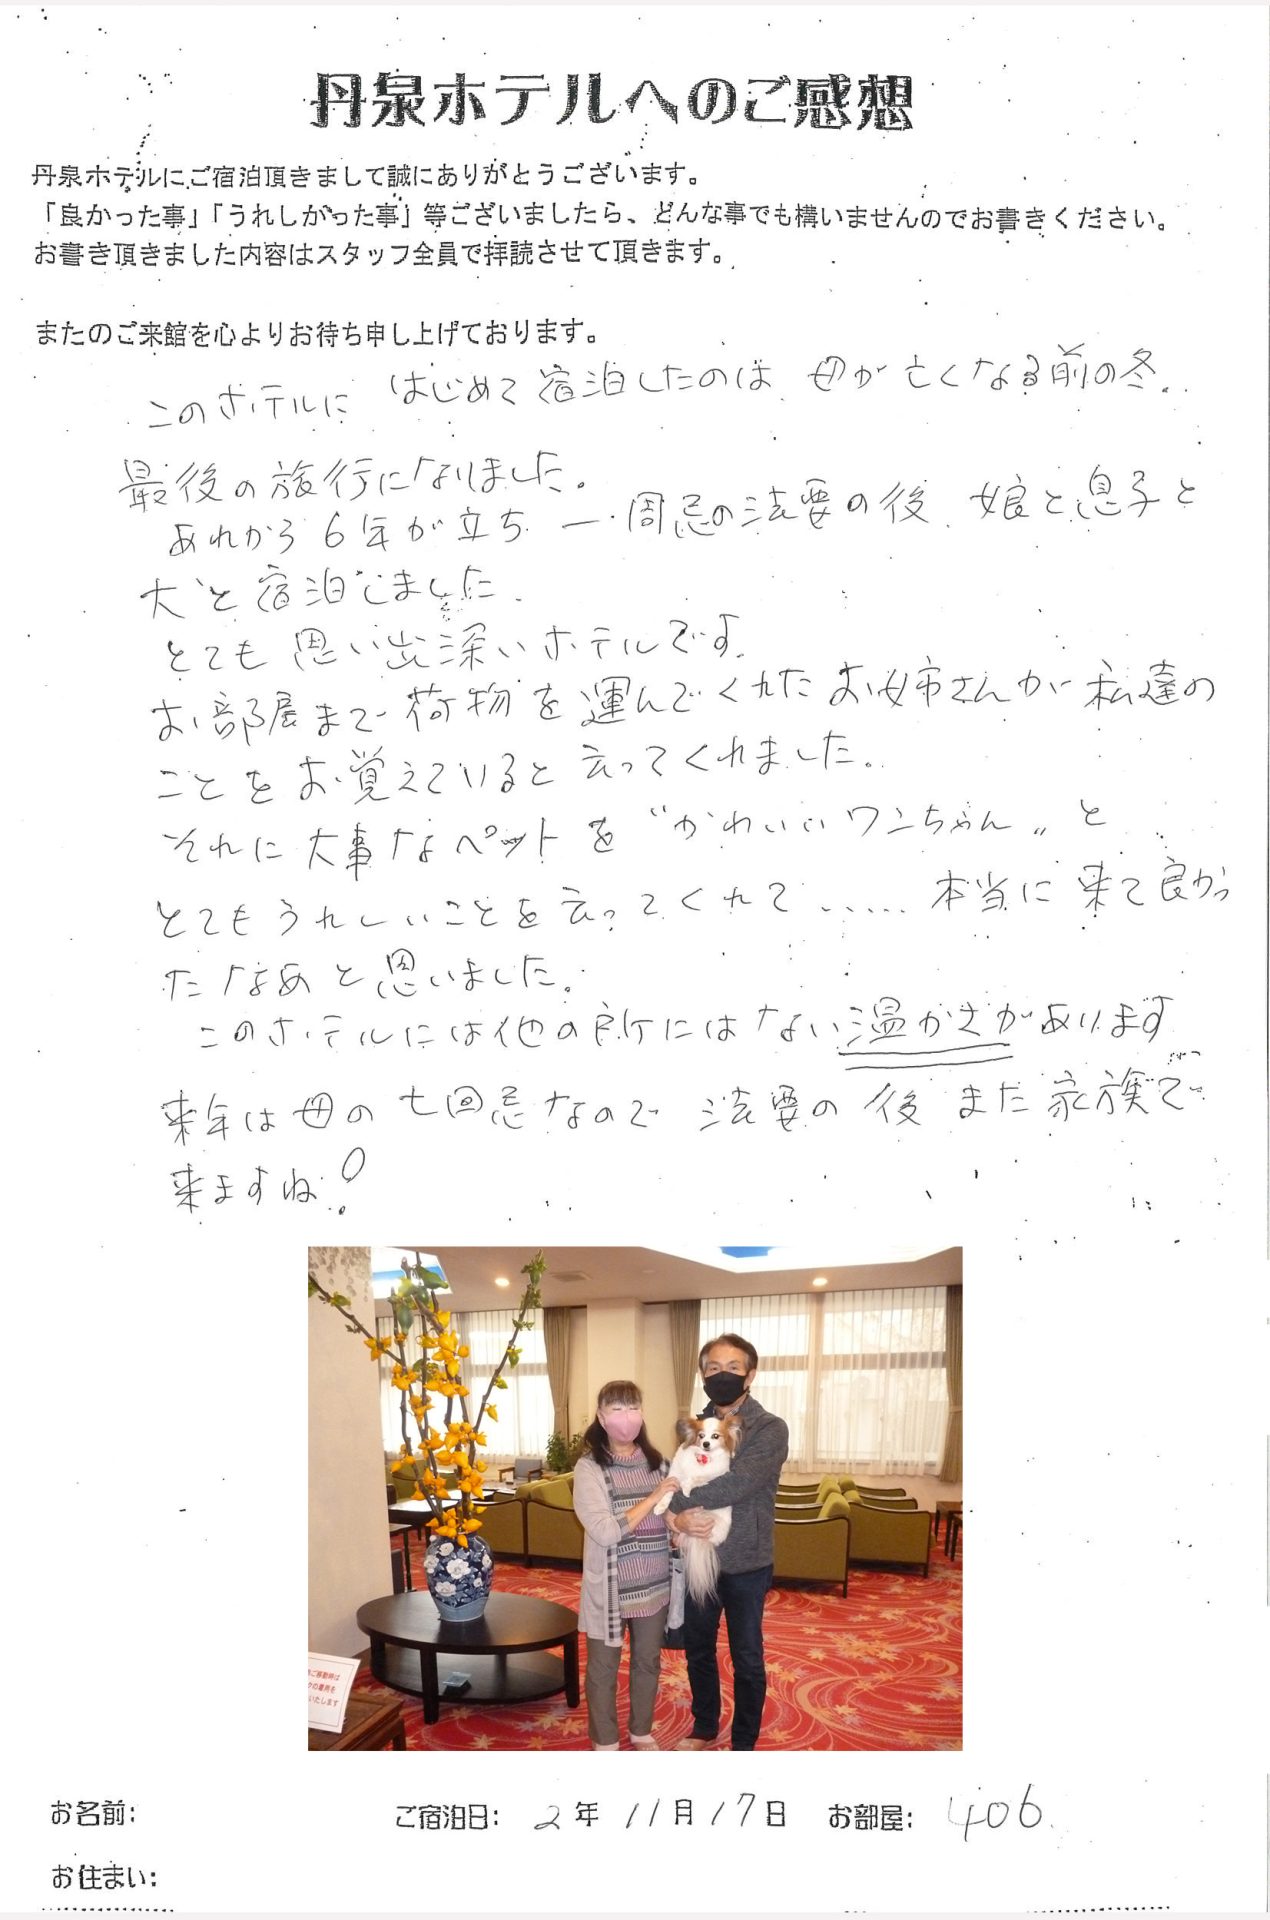 丹泉ホテルへのご感想
丹泉ホテルにご宿泊頂きまして誠にありがとうございます。
「良かった事」「うれしかった事」等ございましたら、どんな事でも構いませんのでお書きください。
お書き頂きました内容はスタッフ全員で拝読させて頂きます。
またのご来館を心よりお待ち申し上げております。
このホテルに はじめて宿泊したのは 母が亡くなる前の冬.
最後の旅行になりました。
あれから6年が立ち 一周忌の法要の後、娘と息子と
犬と宿泊しました.
とても思い出深いホテルです.
お部屋まで荷物を運んでくれたお姉さんが私達の
ことをお覚えていると云ってくれました.
それに大事なペットを"かわいいワンちゃん„と
とてもうれしいことを云ってくれて……本当に来て良かっ
たなあと思いました.
このホテルには他の所にはない温かさがあります
来年は母の七回忌なので 法要の後 また家族で
来ますね!
ご移動時は
クの着用を
いたします
お名前:
ご宿泊日: 2年 11月17日 お部屋: 406
お住まい: